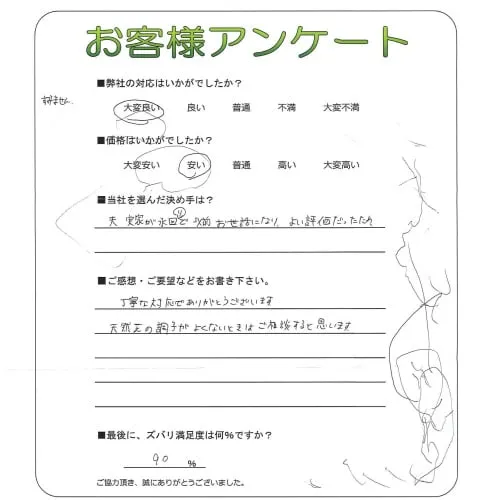 お客様アンケート
■弊社の対応はいかがでしたか?
すみません。
大変良い 良い 普通 不満 大変不満
■価格はいかがでしたか?
大変安い 安い 普通 高い 大変高い
■当社を選んだ決め手は?
夫 実家が水回で以前 お世話になり、よい評価だったため
■ご感想・ご要望などをお書き下さい。
丁寧な対応でありがとうございます
天然王の調子がよくないときはご相談すると思います
■最後に、ズバリ満足度は何%ですか?
90 %
ご協力頂き、誠にありがとうございました。